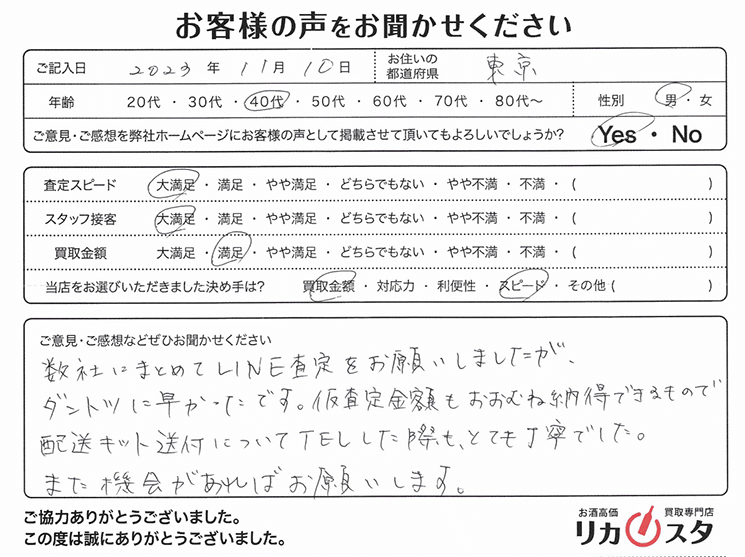 お客様の声をお聞かせください
ご記入日 2023 年 11月 10日 お住いの都道府県 東京
年齢 20代 ・ 30代 ・ 40代 ・ 50代 ・ 60代 ・ 70代 ・ 80代〜 性別 男 ・ 女
ご意見・ご感想を弊社ホームページにお客様の声として掲載させて頂いてもよろしいでしょうか? Yes ・ No
査定スピード 大満足 ・ 満足 ・ やや満足 ・ どちらでもない ・ やや不満 ・ 不満 ・ ( )
スタッフ接客 大満足 ・ 満足 ・ やや満足 ・ どちらでもない ・ やや不満 ・ 不満 ・ ( )
買取金額 大満足 ・ 満足 ・ やや満足 ・ どちらでもない ・ やや不満 ・ 不満 ・ ( )
当店をお選びいただきました決め手は? 買取金額 ・ 対応力 ・ 利便性 ・ スピード ・ その他 ( )
ご意見・ご感想などぜひお聞かせください
数社にまとめてLINE査定をお願いしましたが、
ダントツに早かったです。仮査定金額もおおむね納得できるもので
配送キット送付についてTELした際も、とても丁寧でした。
また機会があればお願いします。
ご協力ありがとうございました。
この度は誠にありがとうございました。
お酒高価 買取専門店
リカスタ